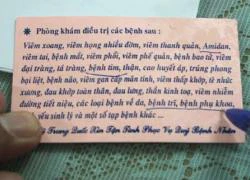 * Phòng khám điều trị các bệnh sau :
Viêm xoang, viêm họng nhiều đờm, viêm thanh quản, Amidan,
viêm tai, bệnh mắt, viêm phổi, viêm phế quản, bệnh bao tử, viêm
đại tràng, tá tràng, bệnh tim, thận, cao huyết áp, trúng phong
bại liệt, bệnh não, viêm gan cấp mãn tính, viêm thấp khớp, tê nhức
xương, đau khớp toàn thân, đau lưng, thần kinh toạ, viêm nhiễm
đường tiết niệu, các loại bệnh về da, bệnh trĩ, bệnh phụ khoa,
yếu sinh lý và một số tạp bệnh khác ...
Trung Quốc Xin Tận Tình Phục Vụ Quý Bệnh Nhân